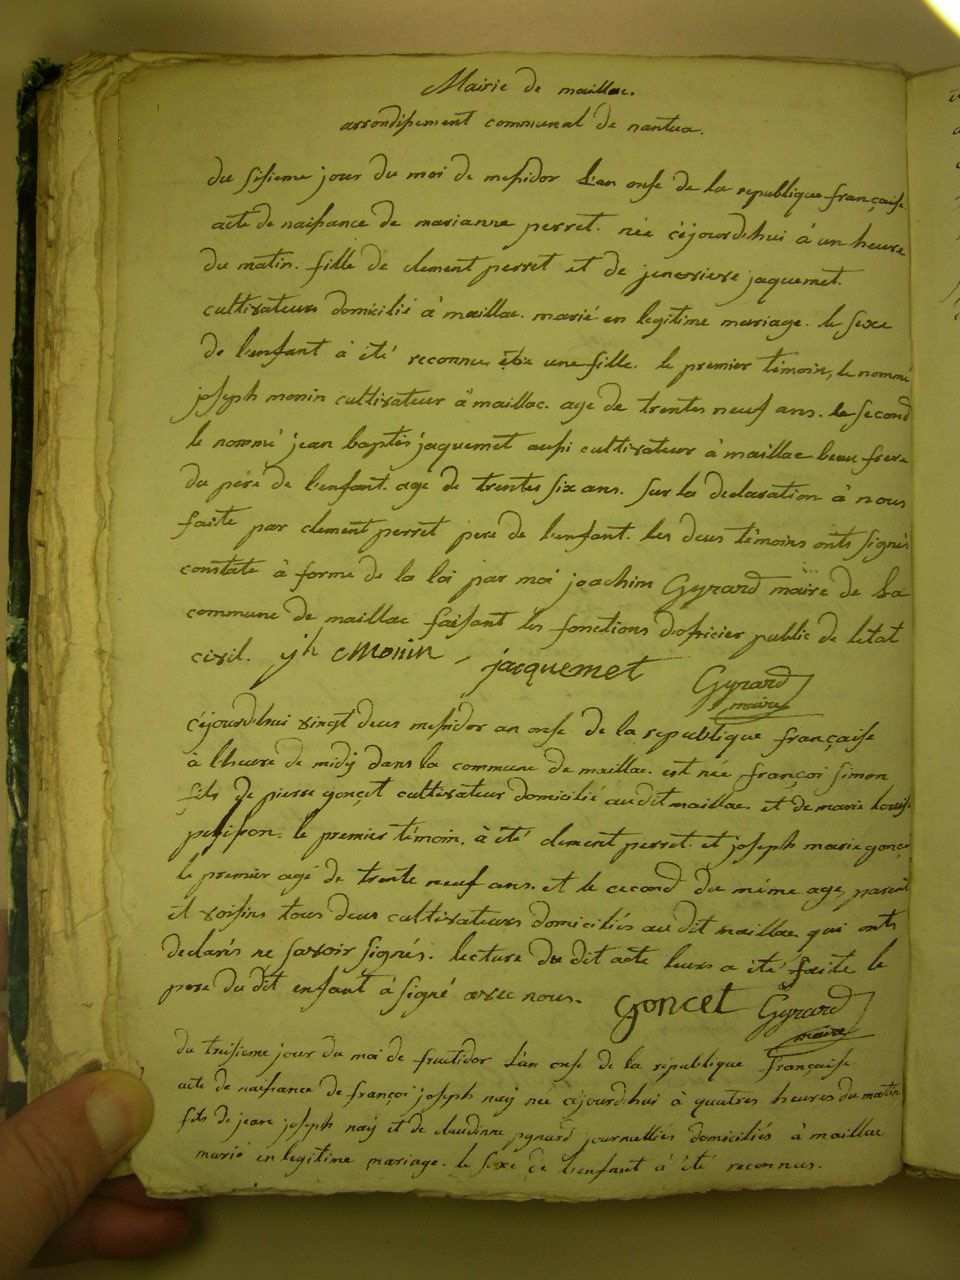 Mairie de maillac.
arrondissement communal de nantua.
du sisieme jour du moi de messidor l'an onse de la republique française
acte de naissance de marianne perret. née cejourd'hui à un heure
du matin. fille de clement perret et de jenevieve jaquemet.
cultivateurs domicilié à maillac. marié en legitime mariage. le sexe
de l'enfant à été reconnu être une fille. le premier témoin, le nommé
joseph monin cultivateur à maillac. age de trentes neuf ans. le second
le nommé jean baptis jaquemet aussi cultivateur à maillac beau frere
du pere de l'enfant. age de trentes six ans. sur la declaration à nous
faite par clement perret pere de l'enfant. les deus témoins onts signés
constaté à forme de la loi par moi joachim Gyrard maire de la
commune de maillac faisant les fonctions d'oficier public de l'etat
civil. jh Monin jacquemet Gyrard
maire
cejourd'hui vingt deus messidor an onse de la republique française
à l'heure de midy dans la commune de maillac. est née françoi simon
fils de pierre gonçet cultivateur domicilié au dit maillac et de marie louise
le premier témoin. à été clement perret. et joseph marie gonçe
le premier agé de trente neuf ans. et le cecond du même age, parent
et voisins tous deus cultivateurs domiciliés au dit maillac qui onts
declarés ne savoir signés. lecture du dit acte leurs a été faite le
pere du dit enfant à signé avec nous. Goncet Gyrard
maire
du treisieme jour du moi de fructidor l'an onse de la république française
acte de naissance de françoi joseph naÿ née cejourd'hui à quatres heures du matin
fils de jean joseph naÿ et de claudinne pynard journalliés domiciliés à maillac
marié en legitime mariage. le sexe de l'enfant à été reconnus.